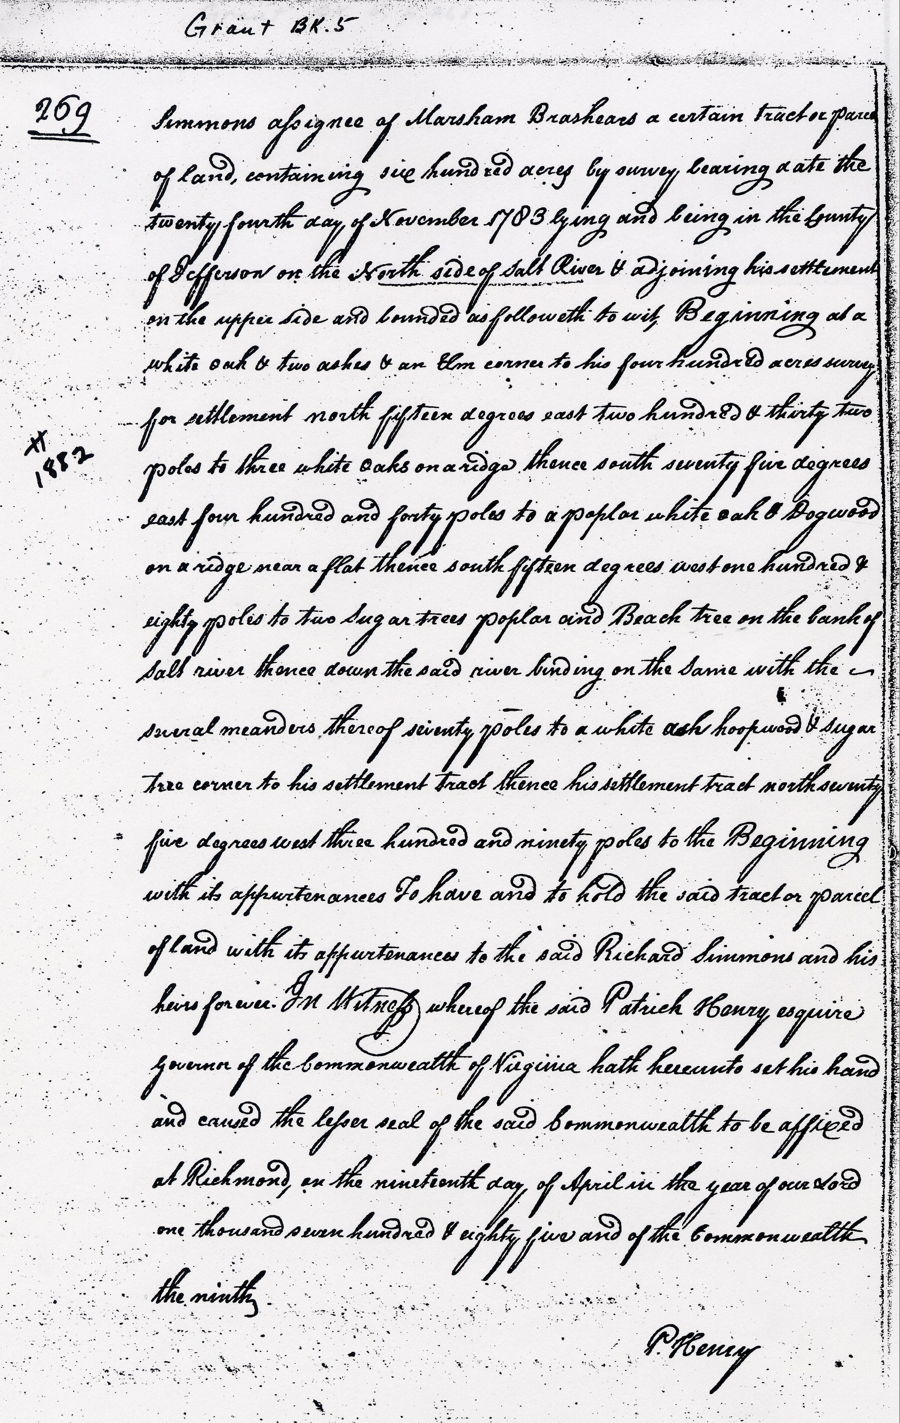 Grant BK. 5
269
Simmons assignee of Marsham Brashears a certain tract or parcel
of land, containing six hundred acres by survey bearing date the
twenty fourth day of November 1783 lying and being in the County
of Jefferson on the North side of Salt River & adjoining his settlement
on the upper side and bounded as followeth to wit, Beginning at a
white oak & two ashes & an Elm corner to his four hundred acres survey
for settlement north fifteen degrees east two hundred & thirty two
# 1882
poles to three white oaks on a ridge thence south seventy five degrees
east four hundred and forty poles to a poplar white oak & Dogwood
on a ridge near a flat thence south fifteen degrees west one hundred &
eighty poles to two Sugar trees poplar and Beach tree on the bank of
Salt river thence down the said river binding on the Same with the
several meanders thereof seventy poles to a white ash hoopwood & sugar
tree corner to his settlement tract thence his settlement tract north seventy
five degrees west three hundred and ninety poles to the Beginning
with its appurtenances To have and to hold the said tract or parcel
of land with its appurtenances to the said Richard Simmons and his
heirs forever. In Witness whereof the said Patrick Henry esquire
Governor of the Commonwealth of Virginia hath hereunto set his hand
and caused the lesser seal of the said Commonwealth to be affixed
at Richmond, on the nineteenth day of April in the year of our Lord
one thousand seven hundred & eighty five and of the Commonwealth
the ninth
P. Henry